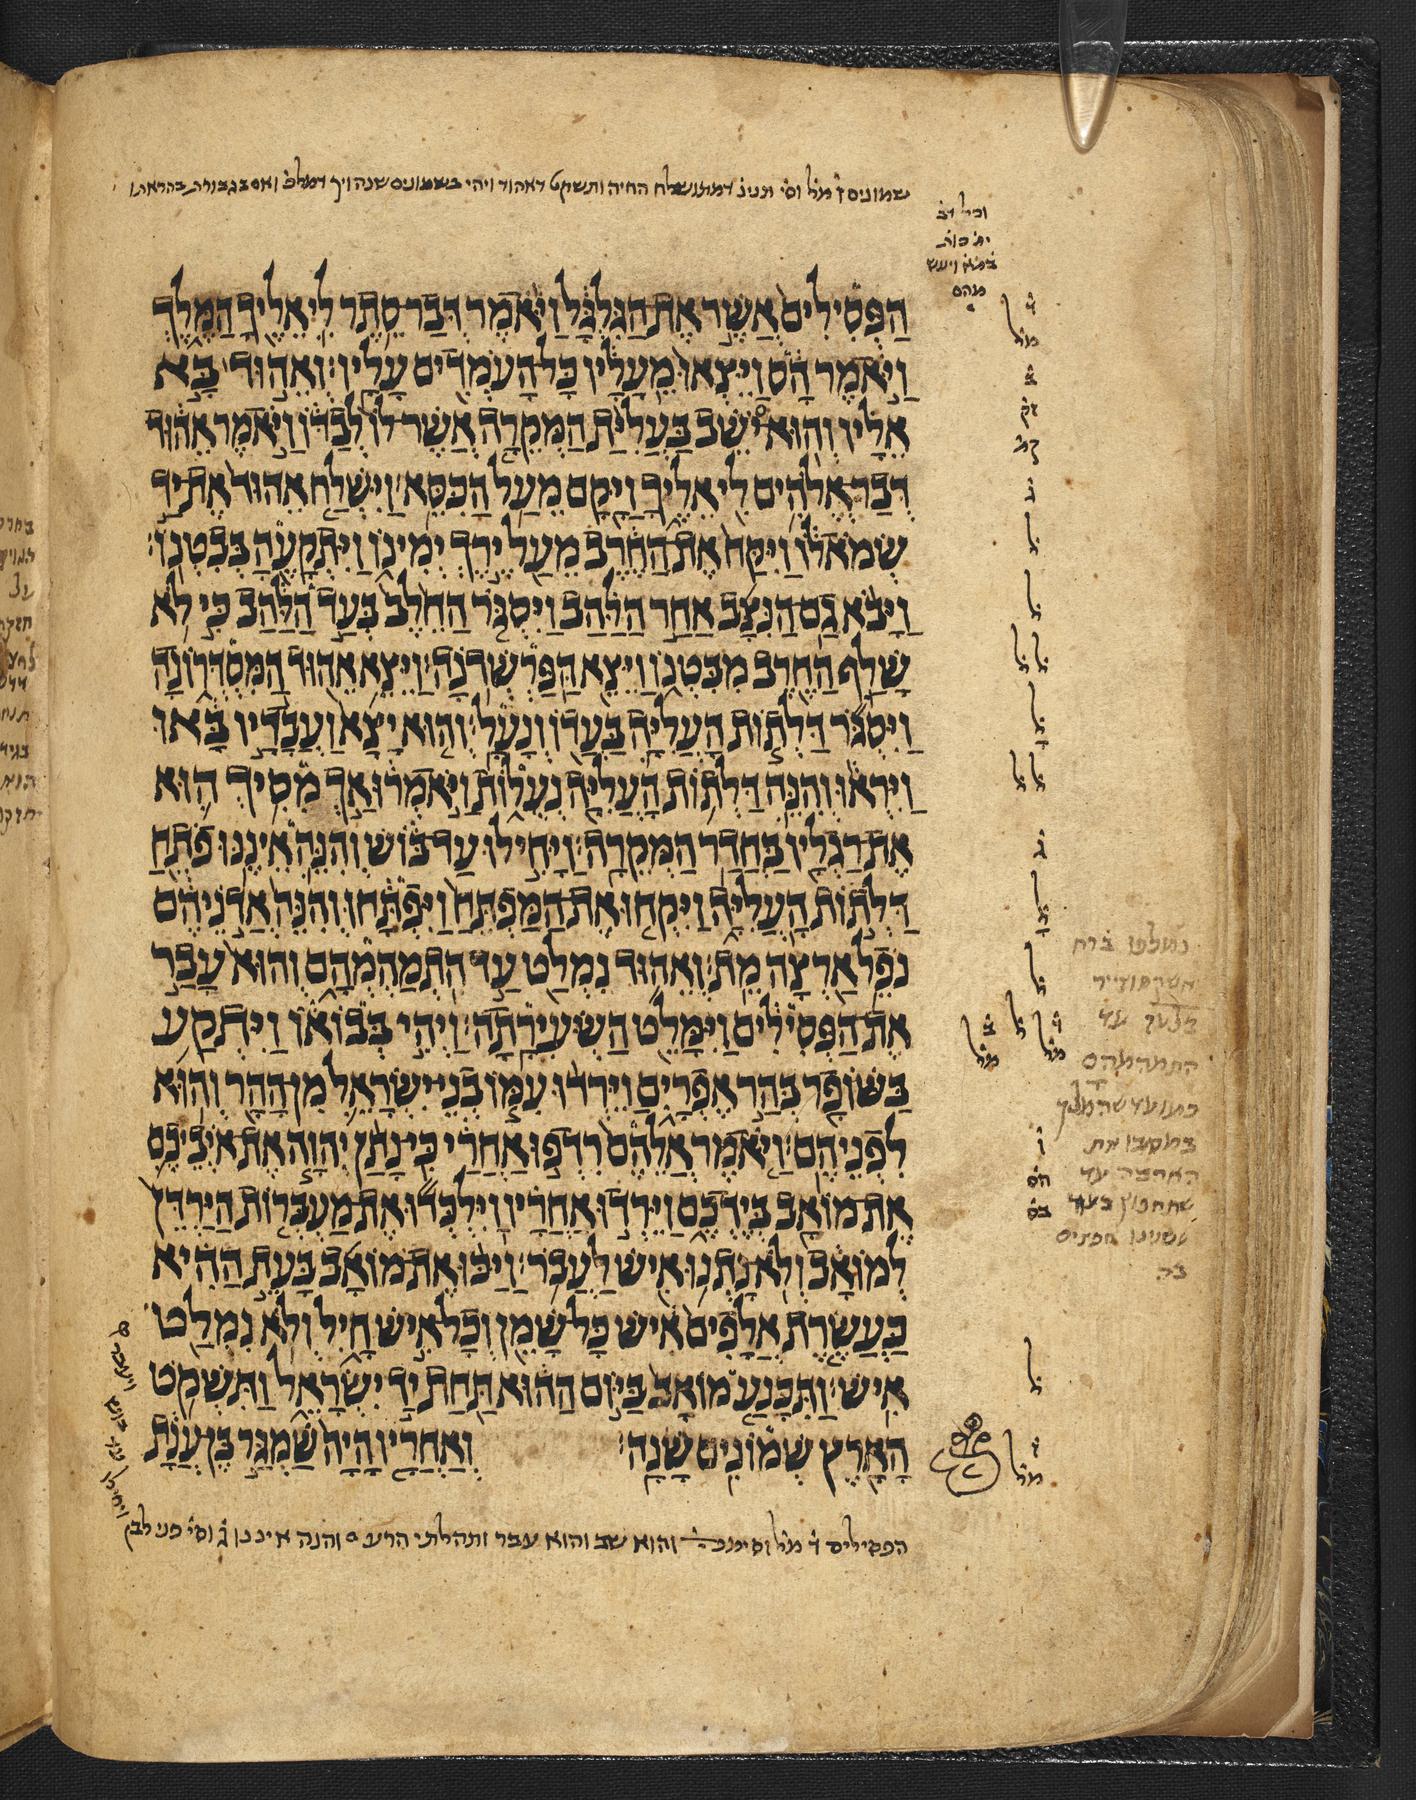 שמונים ז̇ מל̇ וסי̇ תנינ̇ דמתושלח החיה ותשקט דאהוד ויהי בשמונים שנה ויך דמלכ̇ ואם בגבורת בהראתו
וכל דב̇
מהם
הַפְּסִילִים אֲשֶׁר אֶת הַגִּלְגָּל וַיֹּאמֶר דְּבַר סֵתֶר לִי אֵלֶיךָ הַמֶּלֶךְ
וַיֹּאמֶר הָס וַיֵּצְאוּ מֵעָלָיו כָּל הָעֹמְדִים עָלָיו׃ וְאֵהוּד בָּא
אֵלָיו וְהוּא יֹשֵׁב בַּעֲלִיַּת הַמְּקֵרָה אֲשֶׁר לוֹ לְבַדּוֹ וַיֹּאמֶר אֵהוּד
דְּבַר אֱלֹהִים לִי אֵלֶיךָ וַיָּקָם מֵעַל הַכִּסֵּא׃ וַיִּשְׁלַח אֵהוּד אֶת יַד
שְׂמֹאלוֹ וַיִּקַּח אֶת הַחֶרֶב מֵעַל יֶרֶךְ יְמִינוֹ וַיִּתְקָעֶהָ בְּבִטְנוֹ׃
וַיָּבֹא גַם הַנִּצָּב אַחַר הַלַּהַב וַיִּסְגֹּר הַחֵלֶב בְּעַד הַלַּהַב כִּי לֹא
שָׁלַף הַחֶרֶב מִבִּטְנוֹ וַיֵּצֵא הַפַּרְשְׁדֹנָה׃ וַיֵּצֵא אֵהוּד הַמִּסְדְּרוֹנָה
וַיִּסְגֹּר דַּלְתוֹת הָעֲלִיָּה בַּעֲדוֹ וְנָעָל׃ וְהוּא יָצָא וַעֲבָדָיו בָּאוּ
וַיִּרְאוּ וְהִנֵּה דַּלְתוֹת הָעֲלִיָּה נְעֻלוֹת וַיֹּאמְרוּ אַךְ מֵסִיךְ הוּא
אֶת רַגְלָיו בַּחֲדַר הַמְּקֵרָה׃ וַיָּחִילוּ עַד בּוֹשׁ וְהִנֵּה אֵינֶנּוּ פֹתֵחַ
דַּלְתוֹת הָעֲלִיָּה וַיִּקְחוּ אֶת הַמַּפְתֵּחַ וַיִּפְתָּחוּ וְהִנֵּה אֲדֹנֵיהֶם
נֹפֵל אַרְצָה מֵת׃ וְאֵהוּד נִמְלַט עַד הִתְמַהְמְהָם וְהוּא עָבַר
אֶת הַפְּסִילִים וַיִּמָּלֵט הַשְּׂעִירָתָה׃ וַיְהִי בְּבוֹאוֹ וַיִּתְקַע
בַּשּׁוֹפָר בְּהַר אֶפְרָיִם וַיֵּרְדוּ עִמּוֹ בְנֵי יִשְׂרָאֵל מִן הָהָר וְהוּא
לִפְנֵיהֶם׃ וַיֹּאמֶר אֲלֵהֶם רִדְפוּ אַחֲרַי כִּי נָתַן יְהוָה אֶת אֹיְבֵיכֶם
אֶת מוֹאָב בְּיֶדְכֶם וַיֵּרְדוּ אַחֲרָיו וַיִּלְכְּדוּ אֶת מַעְבְּרוֹת הַיַּרְדֵּן
לְמוֹאָב וְלֹא נָתְנוּ אִישׁ לַעֲבֹר׃ וַיַּכּוּ אֶת מוֹאָב בָּעֵת הַהִיא
כַּעֲשֶׂרֶת אֲלָפִים אִישׁ כָּל שָׁמֵן וְכָל אִישׁ חָיִל וְלֹא נִמְלַט
אִישׁ׃ וַתִּכָּנַע מוֹאָב בַּיּוֹם הַהוּא תַּחַת יַד יִשְׂרָאֵל וַתִּשְׁקֹט
הָאָרֶץ שְׁמוֹנִים שָׁנָה׃ וְאַחֲרָיו הָיָה שַׁמְגַּר בֶּן עֲנָת
ד̇
מל̇
ב̇
ג̇
ל̇
ל̇
ל̇ ל̇
ל̇
ל̇ ל̇
ג̇
ל̇
ל̇
ד̇ ל̇ ב̇
מל̇ מל̇
ו̇
ל̇
ז̇
מל̇
התמהמהם
האהבה עד
הפסילים ד̇ מל̇ וסימנה̇ והוא שב והוא עבר ותהלתי הרע ס̇ והנה איננו ג̇ וסי̇ פני לבן